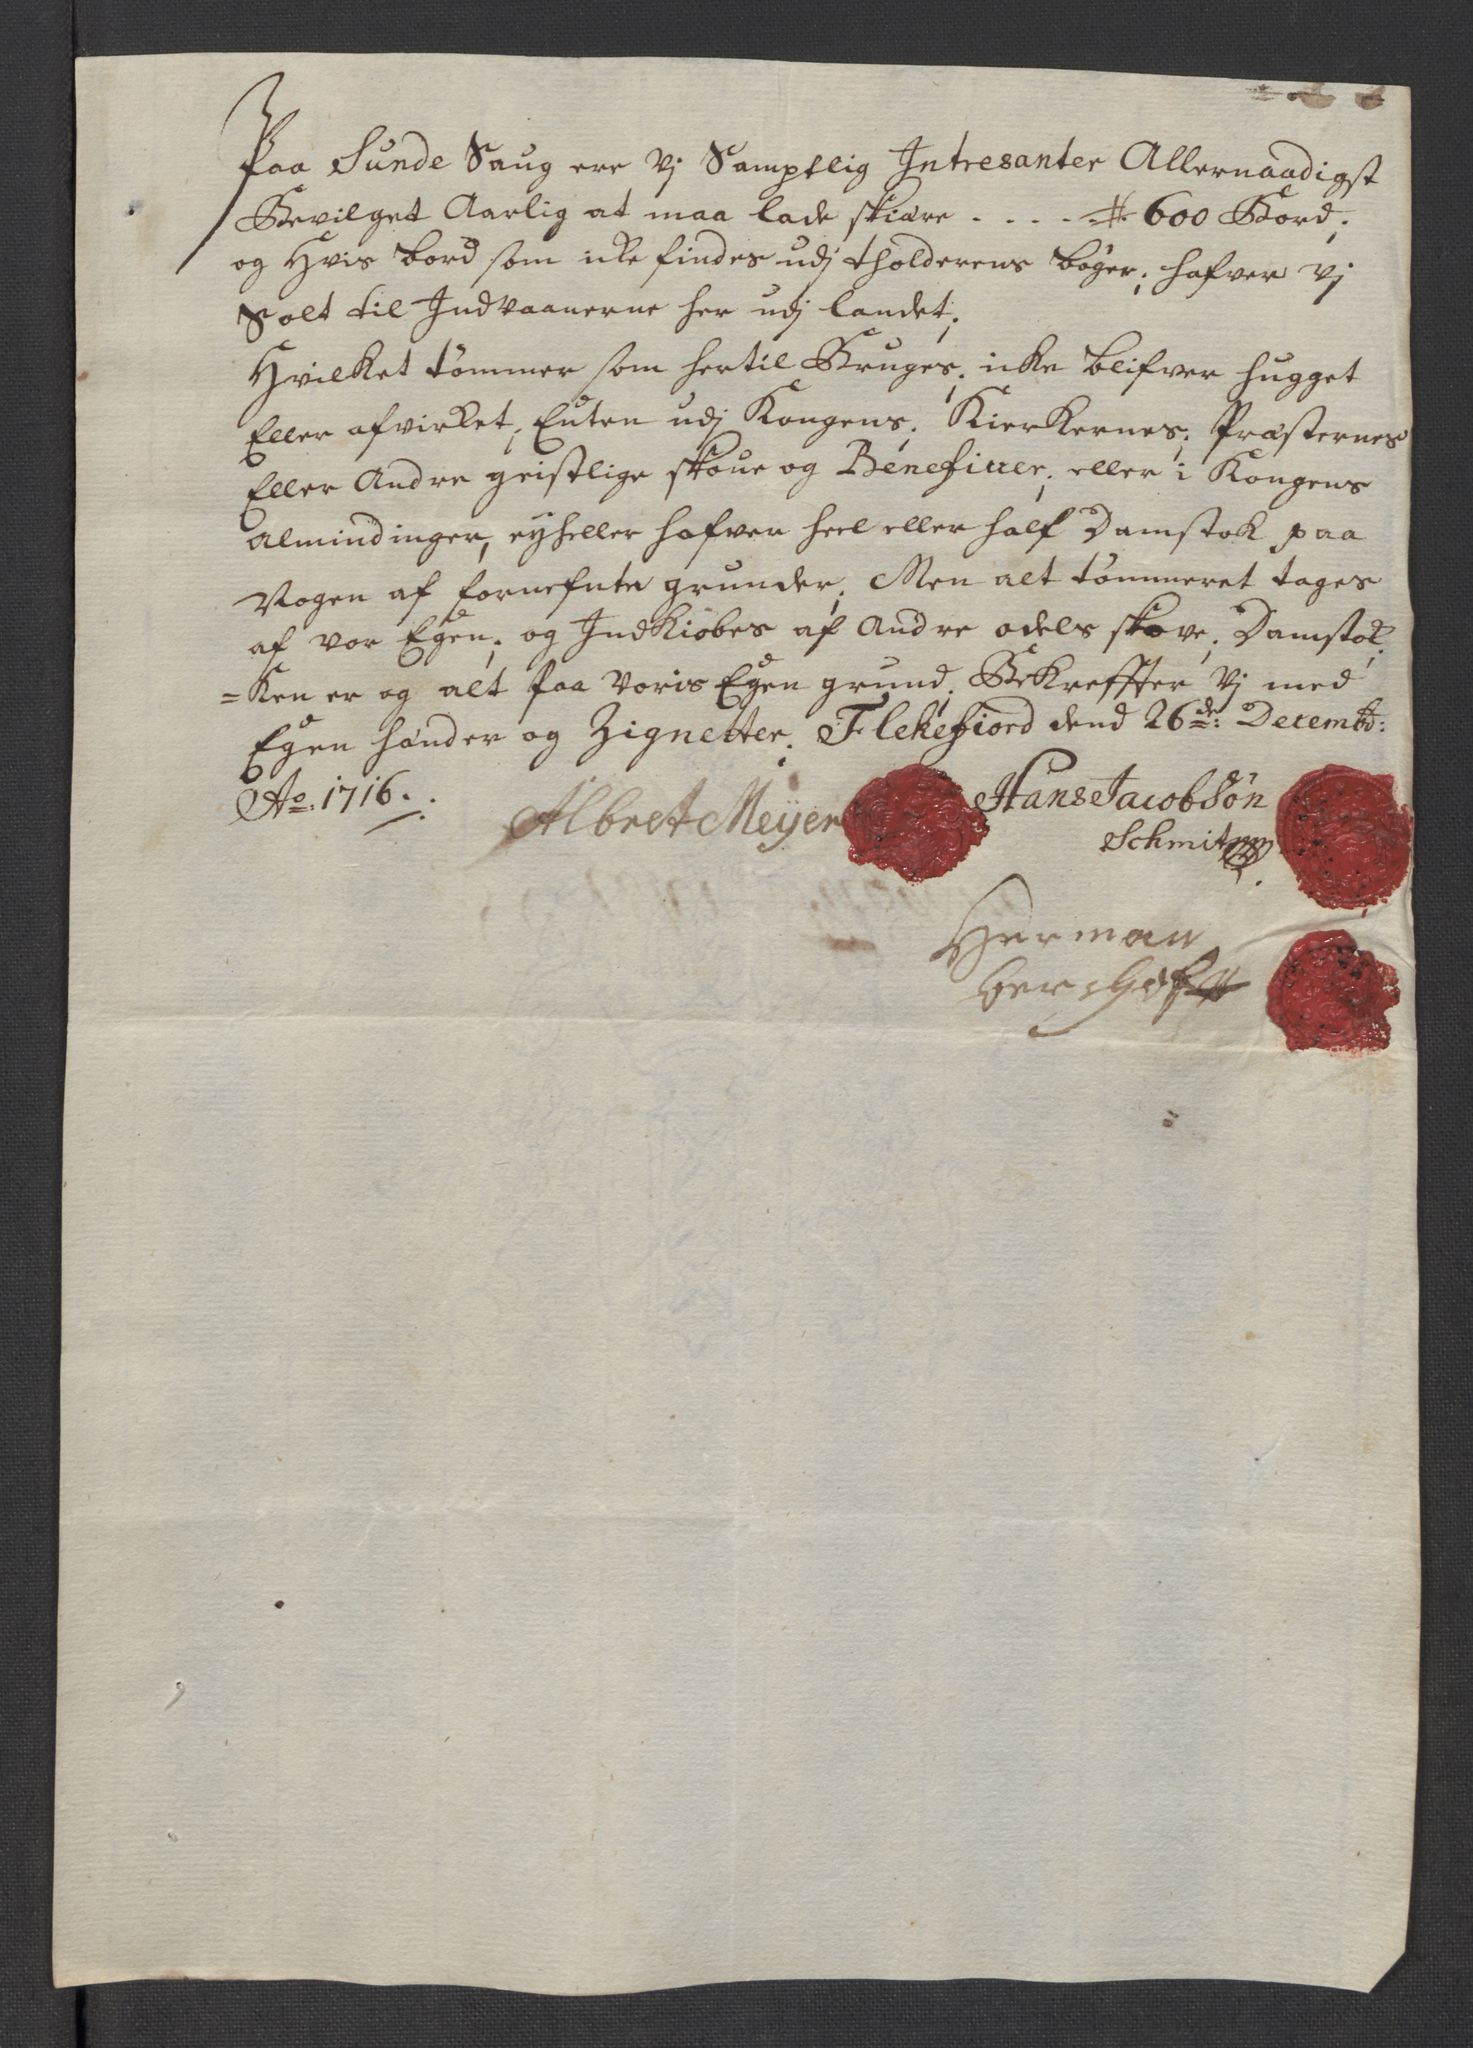 Paa Sunde Saug ere vj Samptlig Intresanter Allernaadigst
Bevilget Aarlig at maa lade skiære . . . . # 600 Bord;
og Hvis bord som icke findes udj tholderens bøger; hafver vj
Solt til Indvaanerne her udj landet;
Hvilket tømmer som hertil Bruges; icke blifver hugget
Eller afvirket; Enten udj Kongens; Kierkernes; Præsternes
Eller Andre geistlige skoue og Beneficier; eller i Kongens
Almindinger, ey heller hafver heel eller half Damstok paa
Nogen af fornefnte grunder; Men alt tømmeret tages
af vor Egen; og Indkiøbes af Andre odels skove; Damstok,
=ken er og alt paa voris Egen grund; Bekreffter vj med
Egen hænder og Zignetter; Flekefiord dend 26de: Decembr:
Ao. 1716.
Albret Meÿer
Hans Jacobsøn
Schmit
Herman